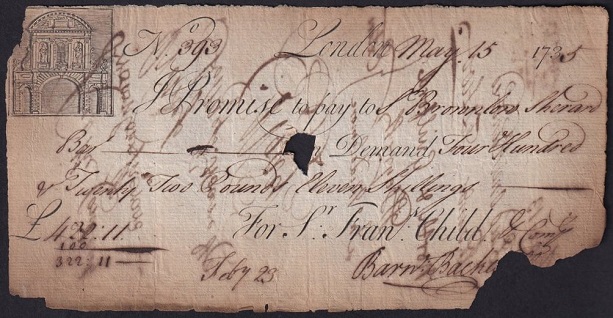 No. 393 London May 15 1735
I Promise to pay to Sr. Brownlow Sherard
Bart. on Demand Four Hundred
& Twenty Two Pounds Eleven Shillings
£ 422 : 11 For Sr. Fran. Child & Comp
100
322 : 11 Feby 23 Barn. Backe